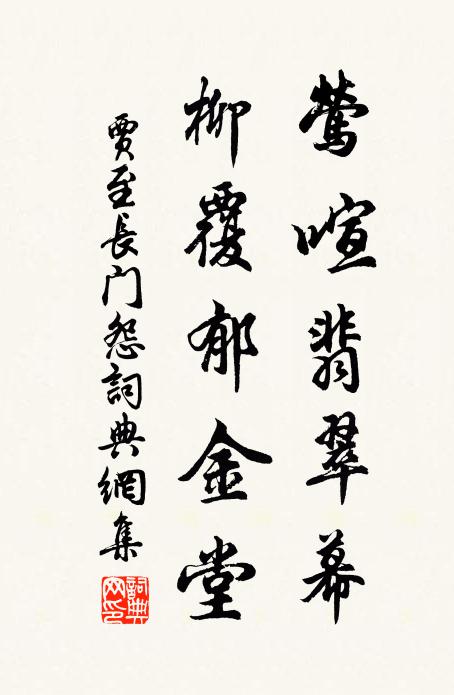 鶯喧翡翠幕
柳覆郁金堂
賈至長门怨詞典網集
詞典网印